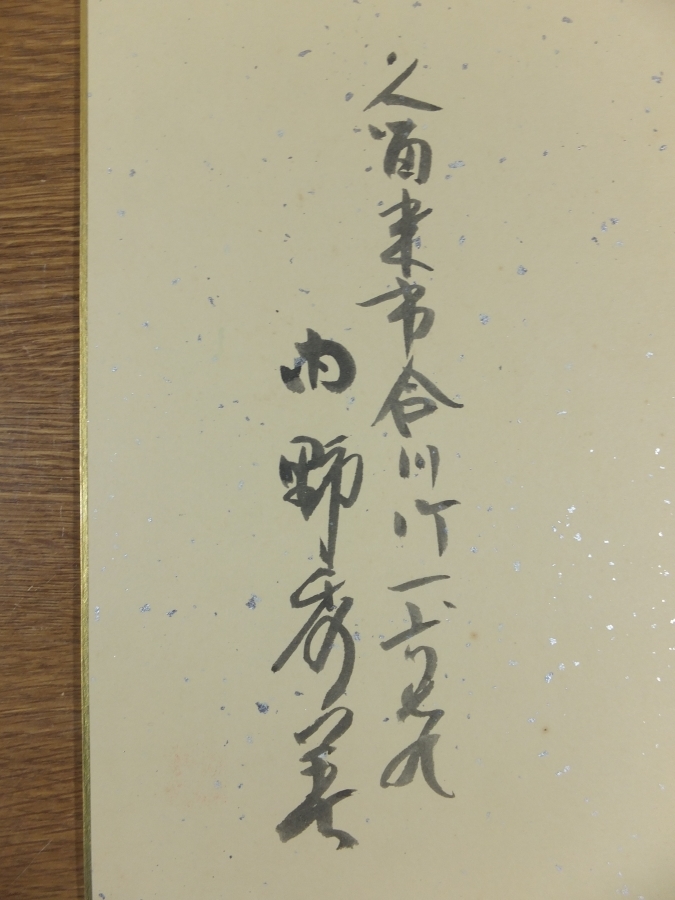 久留米市合川町一五九
内野秀美